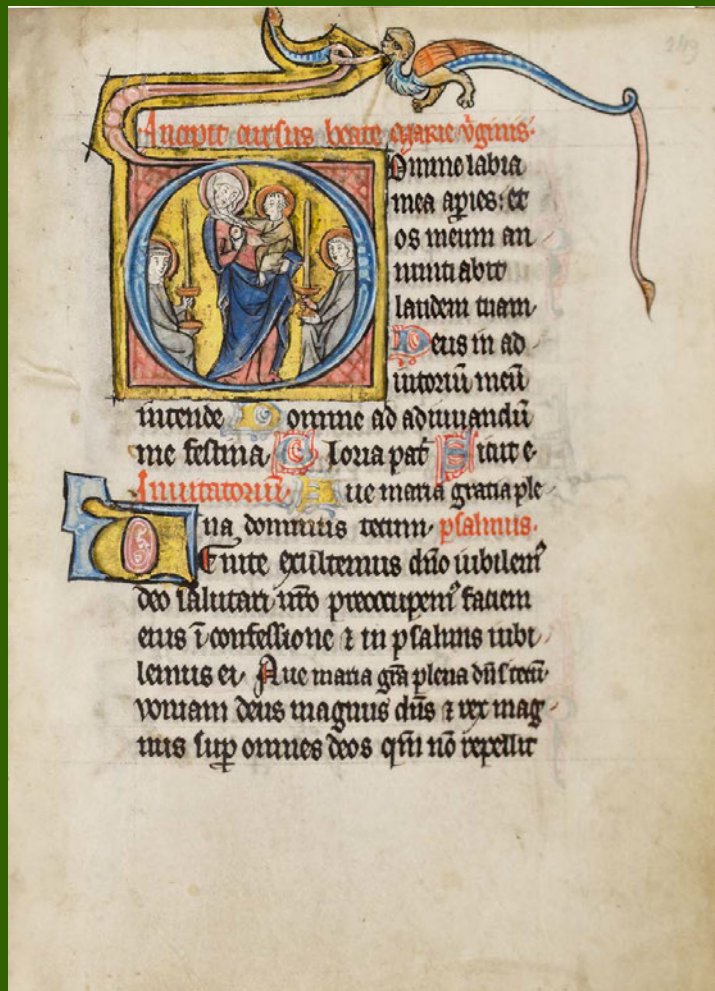 Incipit cursus beate marie v̓ginis.
Domine labia
mea ap̲ies: et
os meum an
nuntiabit
laudem tuam
Deus in ad
iutoriū meū
intende Domine ad adiuuandū
me festina. Gloria pat̄ Sicut e.
Inuitatoriū. Aue maria gratia ple
na dominus tecum. psalmus.
Uenite exultemus dn̄o iubilem᷒
deo salutari nr̄o preoccupem᷒ faciem
eius ī confessione ⁊ in psalmis iubi
lemus ei. Aue maria grā plena dn̄s tecū.
Quoniam deus magnus dn̄s ⁊ rex mag
nus sup̲ omnes deos qm̄ nō repellit